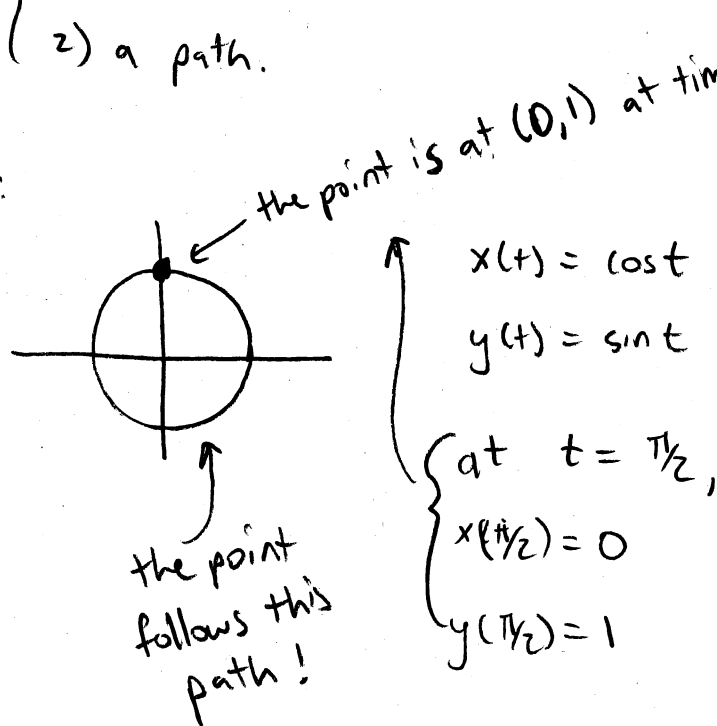 ( 2) a path.
the point is at (0,1) at tim
x(t) = cos t
y(t) = sin t
at t = π/2,
x(π/2) = 0
y(π/2) = 1
the point
follows this
path!